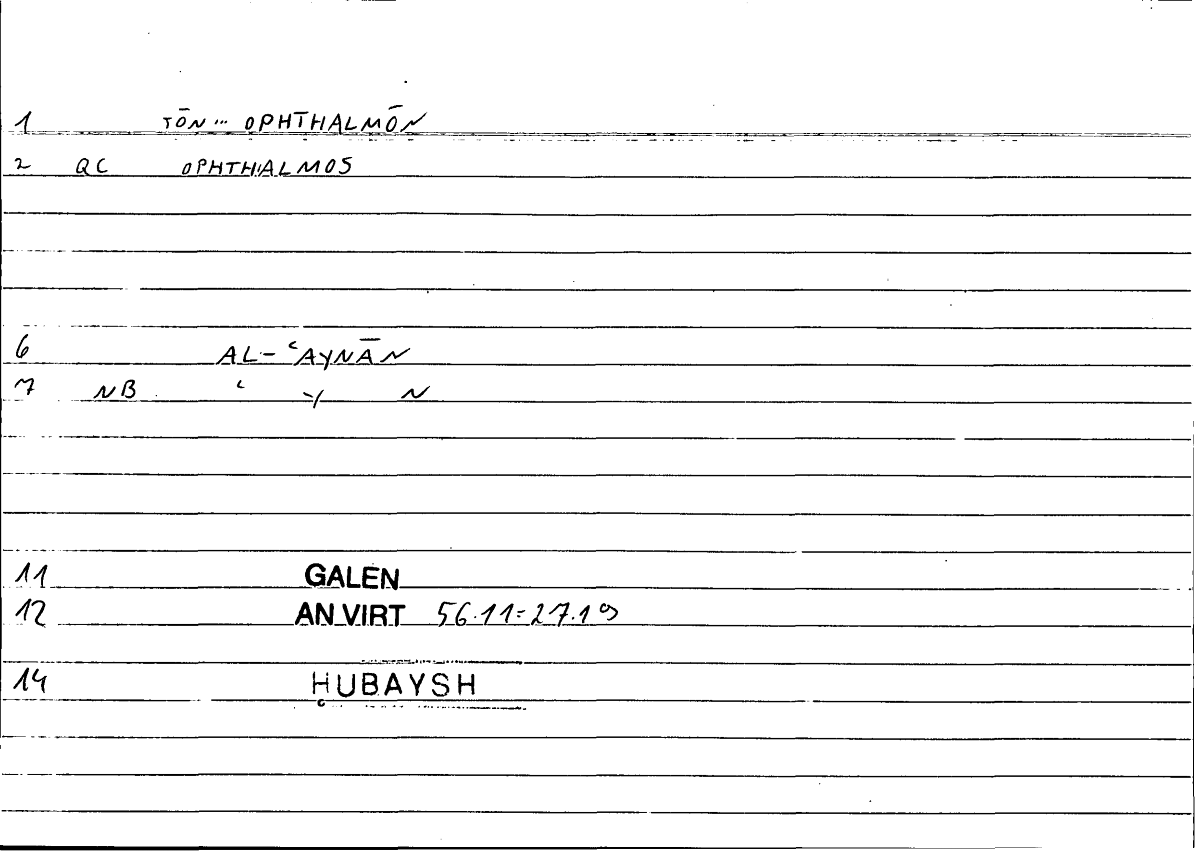 1 TŌN... OPHTHALMŌN
2 QC OPHTHALMOS
6 AL-ʿAYNĀN
7 NB ʿ Y N
11 GALEN
12 AN VIRT 56.11=27.19
14 ḤUBAYSH